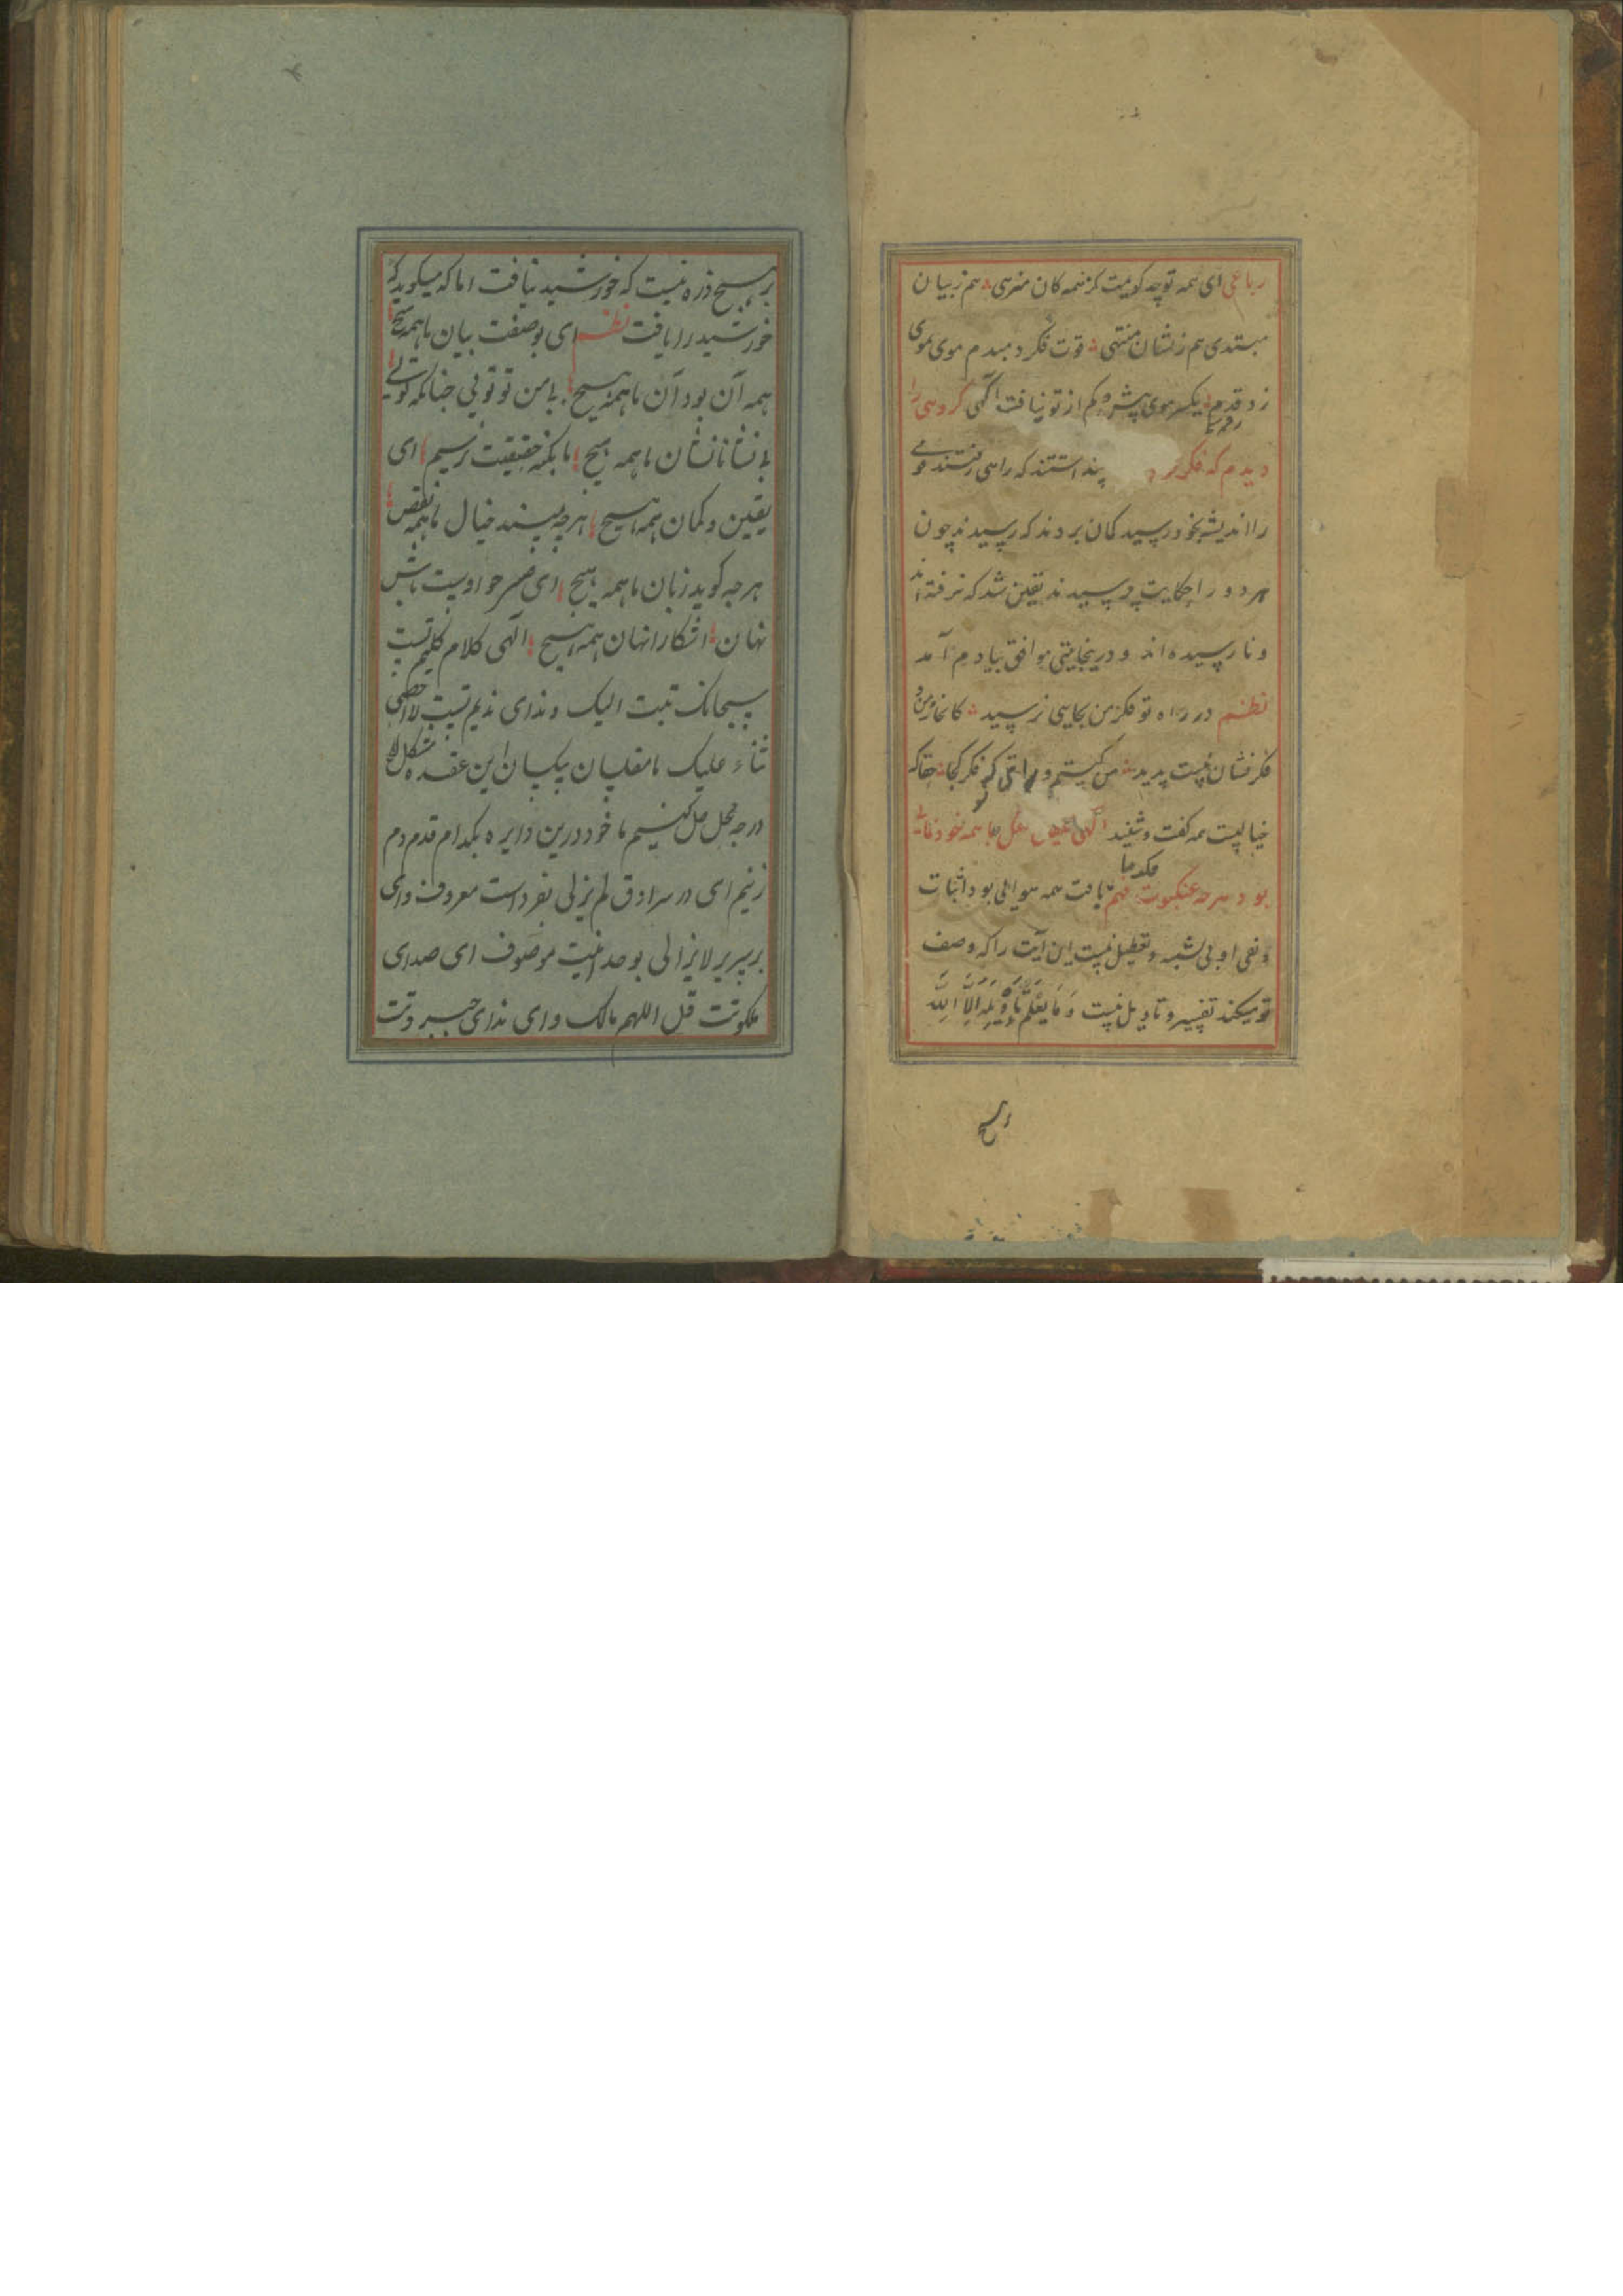 رباعی ای همه تو چه گویمت کز همه کان منزهی هم ز بیان
مبتدی هم ز نشان منتهی قوت فکر دمبدم موی بموی
زد قدم یکسر موی پیش و کم از تو نیافت آگهی گروهی را
دیدم که فکر پنداشتند که راهی رفتند قومی
را اندیشه بخود رسید کمان بردند که رسیدند چون
هر دو را حکایت پرسیدند یقین شد که نرفته اند
و نارسیده اند و درینجا بیتی موافق بیادم آمد
نظم در راه تو فکر من بجایی نرسید کانجا ز من و
فکر نشان نیست پدید من کیستم و فکر کجا حقا که
خیالیست همه گفت و شنید الهی عقل ما همه بخود
بود هر چه عنکبوت فهم ما بافت همه بود اثبات
و نفی او بی تشبیه و تعطیل نیست این آیت را که وصف
تو میکند تفسیر و تاویل نیست وَمَا يَعْلَمُ تَأْوِيلَهُ إِلَّا اللَّهُ
هیچ
هیچ ذره نیست که خورشید نیافت اما که میگوید که
خورشید را یافت نظم ای بوصفت بیان ما همه هیچ
همه آن بود آن ما همه هیچ با من تو تویی چنانکه تویی
با نشانانشان ما همه هیچ ما بکنه حقیقت نرسیم ای
یقین و کمان ما همه هیچ هرچه بیند خیال ما همه نقص
هرچه گوید زبان ما همه هیچ ای باش
نهان آشکارا نهان ما همه هیچ الهی کلام کلیم تست
سبحانک تبت الیک و ندای ندیم تست لا احصی
ثناء علیک ما مفلسان بیکسان این عقده مشکل را
در چه محل حل کنیم ما خود درین دایره بکدام قدم دم
زنیم ای در سرادق لم یزلی بفردانیت معروف و ای
بر سریر لایزالی بوحدانیت موصوف ای صدای
ملکوتت قل اللهم مالک و ای ندای جبروتت